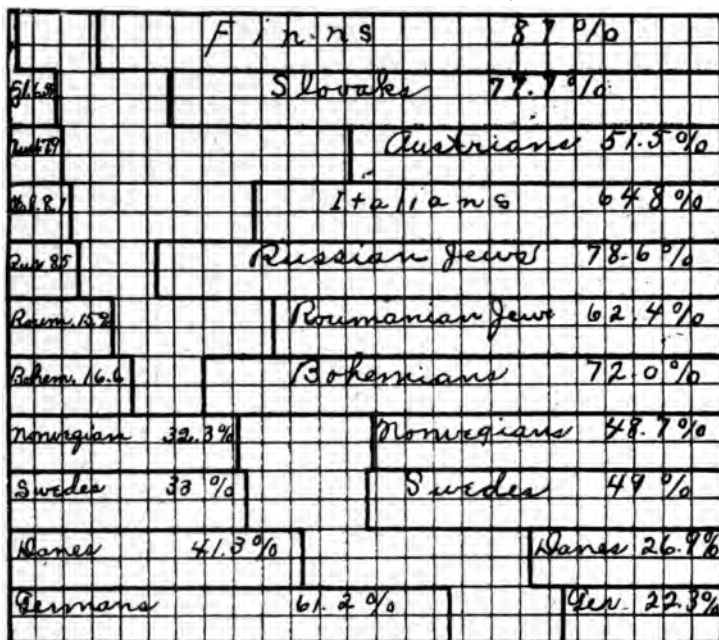 Finns 87%
Slovaks 77.7%
Austrians 51.5%
Italians 64.8%
Rus 8.5 Russian Jews 78.6%
Roum. 15.9 Roumanian Jews 62.4%
Bohem. 16.6 Bohemians 72.0%
Norwegian 32.3% Norwegians 48.7%
Swedes 33% Swedes 49%
Danes 41.3% Danes 26.9%
Germans 61.2% Ger. 22.3%